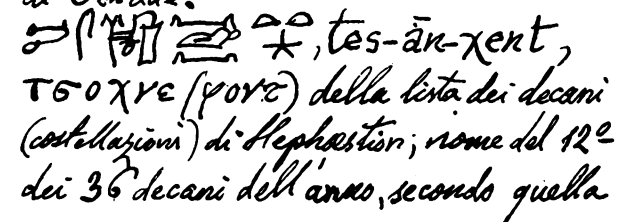 , tes-ān-χent,
τσοχνε (φουτ) della lista dei decani
(costellazioni) di Hephæstion; nome del 12º
dei 36 decani dell'anno, secondo quella